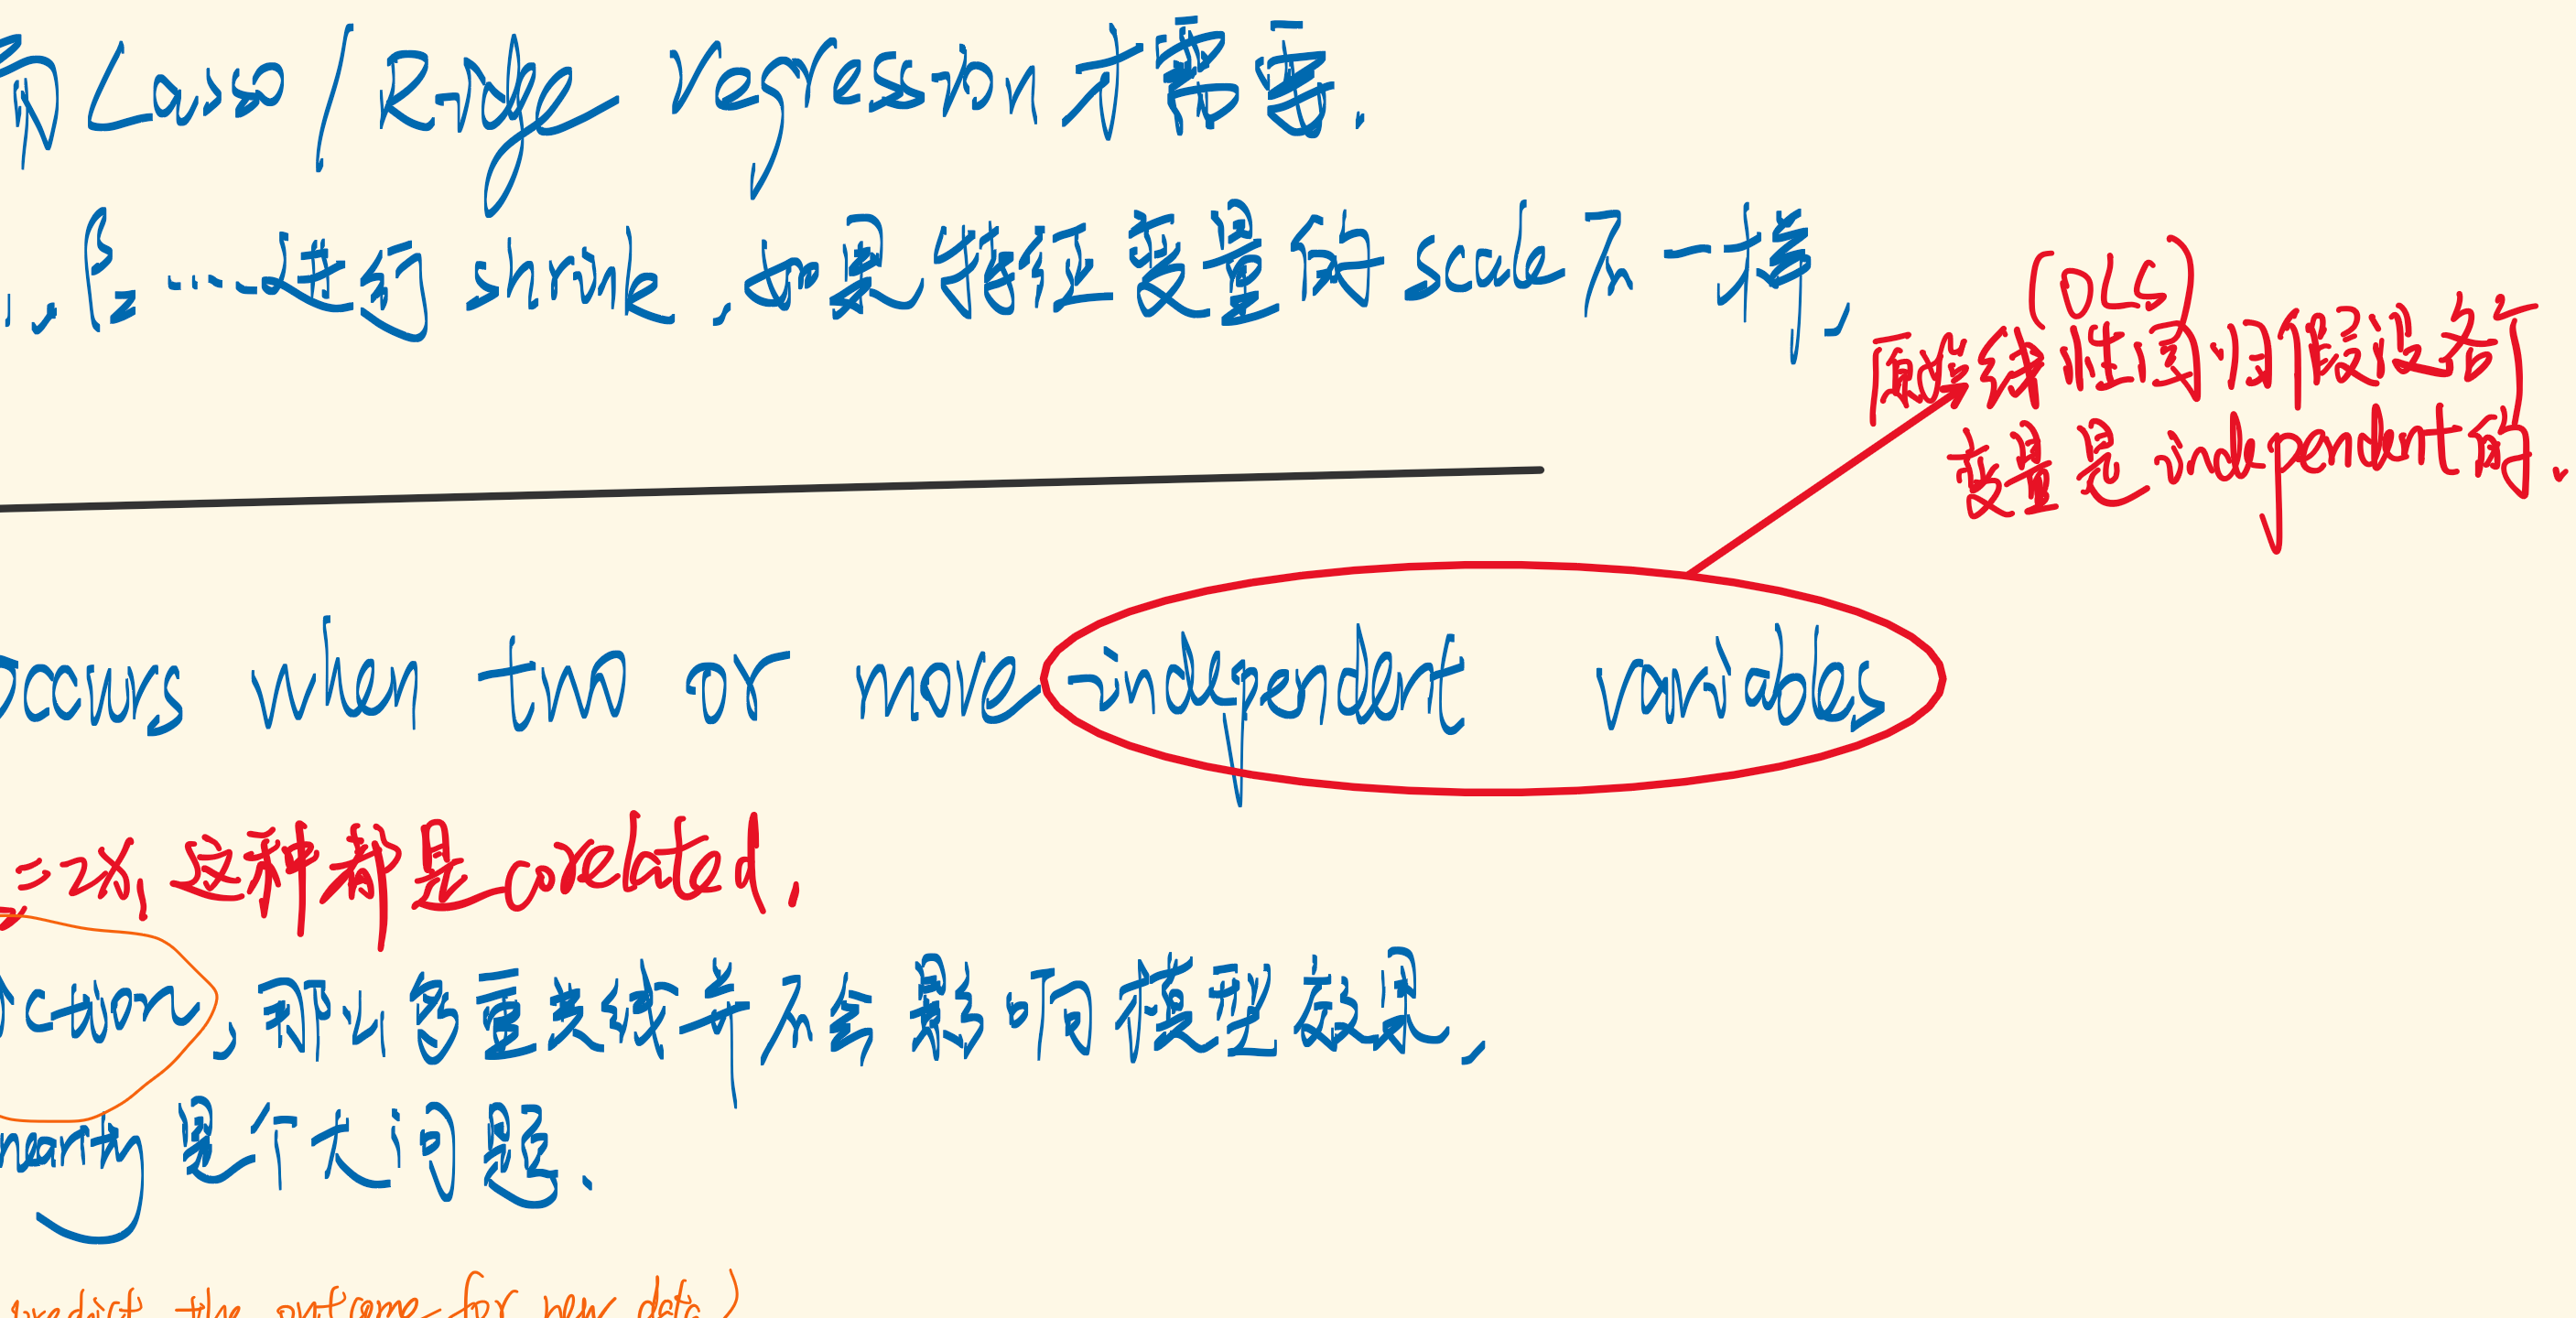 Lasso / Ridge regression 才需要.
, β₂ ……进行 shrink ,如果特征变量的 scale 不一样,
(OLS)
原始线性回归假设各个
变量是 independent 的.
occurs when two or more independent variables
=2x₁ 这种都是 corelated.
ction, 那么多重共线并不会影响模型效果,
nearity 是个大问题.
predict the outcome for new data)